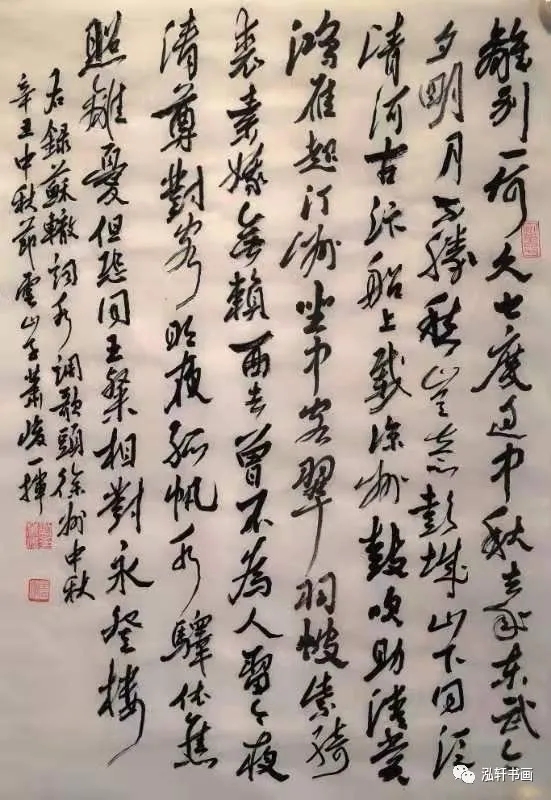 離别一何久七度过中秋去年东武今
夕明月不勝愁豈意彭城山下同泛
清河古汴船上載凉州鼓吹助清賞
鴻雁起汀洲坐中客翠羽帔紫綺
裘素娥無賴西去曾不為人留今夜
清尊對客明夜孤帆水驛依舊
照離憂但恐同王粲相對永登樓
右録蘇轍詞水調歌頭徐州中秋
辛丑中秋節雲山子蕭峻一揮
泓轩书画